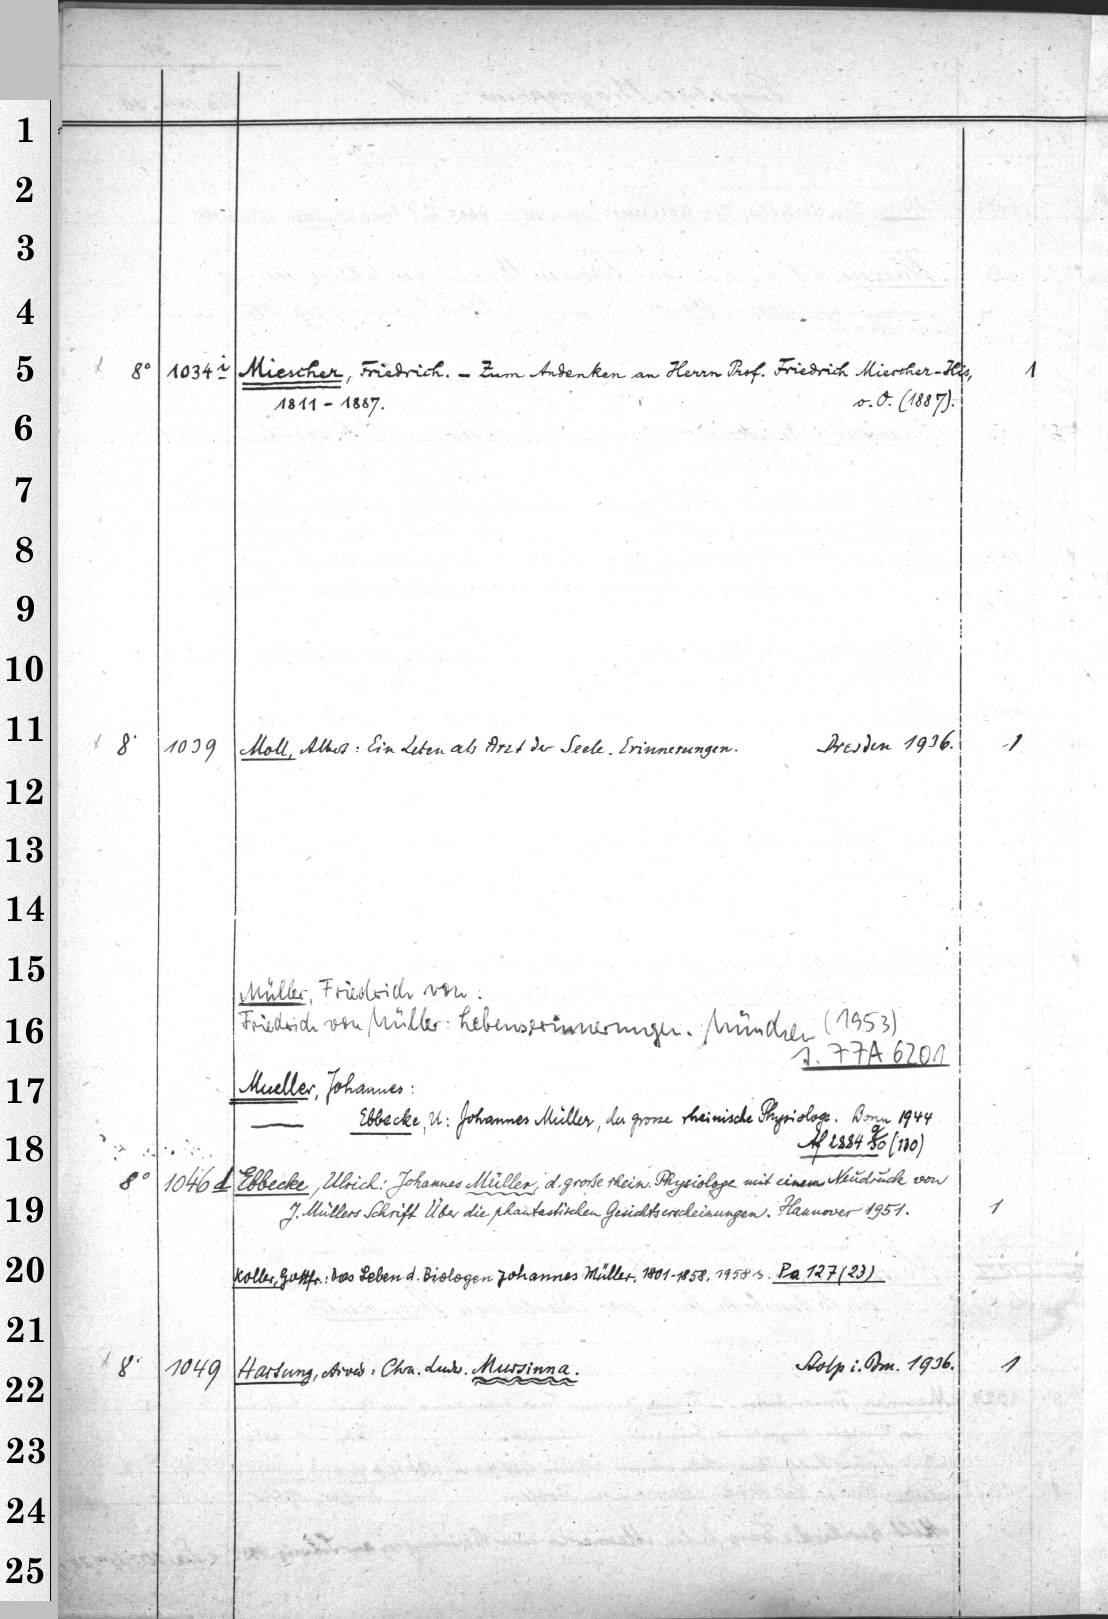 1
2
3
4
5
8° 1034 i Miescher, Friedrich. – Zum Andenken an Herrn Prof. Friedrich Miescher-His, 1
1811 – 1887. o.O. (1887).
6
7
8
9
10
11
8° 1039 Moll, Albert: Ein Leben als Arzt der Seele. Erinnerungen. Dresden 1936. 1
12
13
14
15
Müller, Friedrich von:
16 Friedrich von Müller: Lebenserinnerungen. München (1953)
s. 77A 6201
17 Mueller, Johannes:
Ebbecke, U: Johannes Müller, der grosse rheinische Physiologe. Bonn 1944
18 Af 2884 (180)
8° 1046 d Ebbecke, Ulrich: Johannes Müller, d. große rhein. Physiologe mit einem Neudruck von
19 J. Müllers Schrift Über die phantastischen Gesichtserscheinungen. Hannover 1951. 1
20 Koller, Gottfr.: Das Leben d. Biologen Johannes Müller, 1801-1858. 1958 s. Pa 127(23)
21
8° 1049 Hartung, Arved: Chr. Ludw. Mursinna. Stolp i. Pom. 1936. 1
22
23
24
25